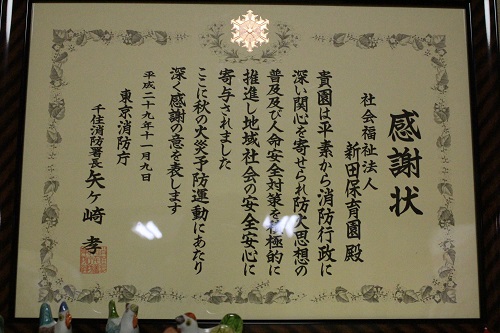 感謝状
社会福祉法人
新田保育園 殿
貴園は平素から消防行政に
深い関心を寄せられ防火思想の
普及及び人命安全対策を極的に
推進し地域社会の安全安心に
寄与されました
ここに秋の火災予防運動にあたり
深く感謝の意を表します
平成二十九年十一月九日
東京消防庁
千住消防署長 矢ヶ崎 孝